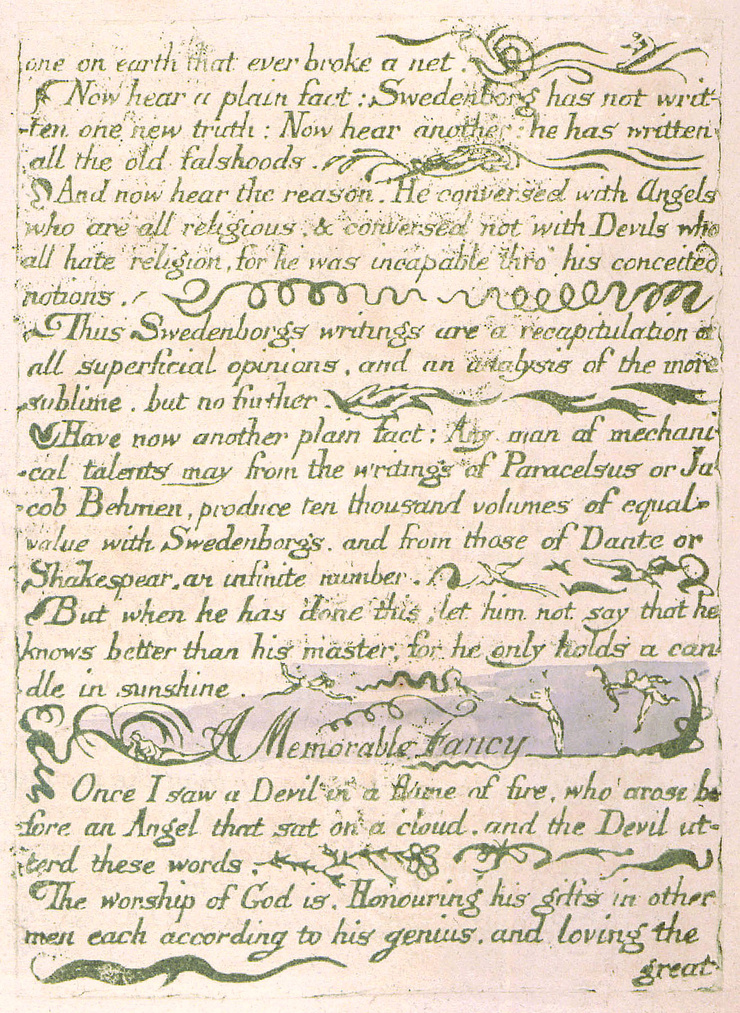 one on earth that ever broke a net.
Now hear a plain fact: Swedenborg has not writ-
-ten one new truth: Now hear another: he has written
all the old falshoods.
And now hear the reason. He conversed with Angels
who are all religious, & conversed not with Devils who
all hate religion, for he was incapable thro' his conceited
notions.
Thus Swedenborgs writings are a recapitulation of
all superficial opinions, and an analysis of the more
sublime, but no further.
Have now another plain fact: Any man of mechani-
-cal talents may from the writings of Paracelsus or Ja-
cob Behmen, produce ten thousand volumes of equal
value with Swedenborg's, and from those of Dante or
Shakespear, an infinite number.
But when he has done this, let him not say that he
knows better than his master, for he only holds a can-
dle in sunshine.
A Memorable Fancy
Once I saw a Devil in a flame of fire, who arose be-
fore an Angel that sat on a cloud, and the Devil ut-
terd these words.
The worship of God is, Honouring his gifts in other
men each according to his genius, and loving the
great